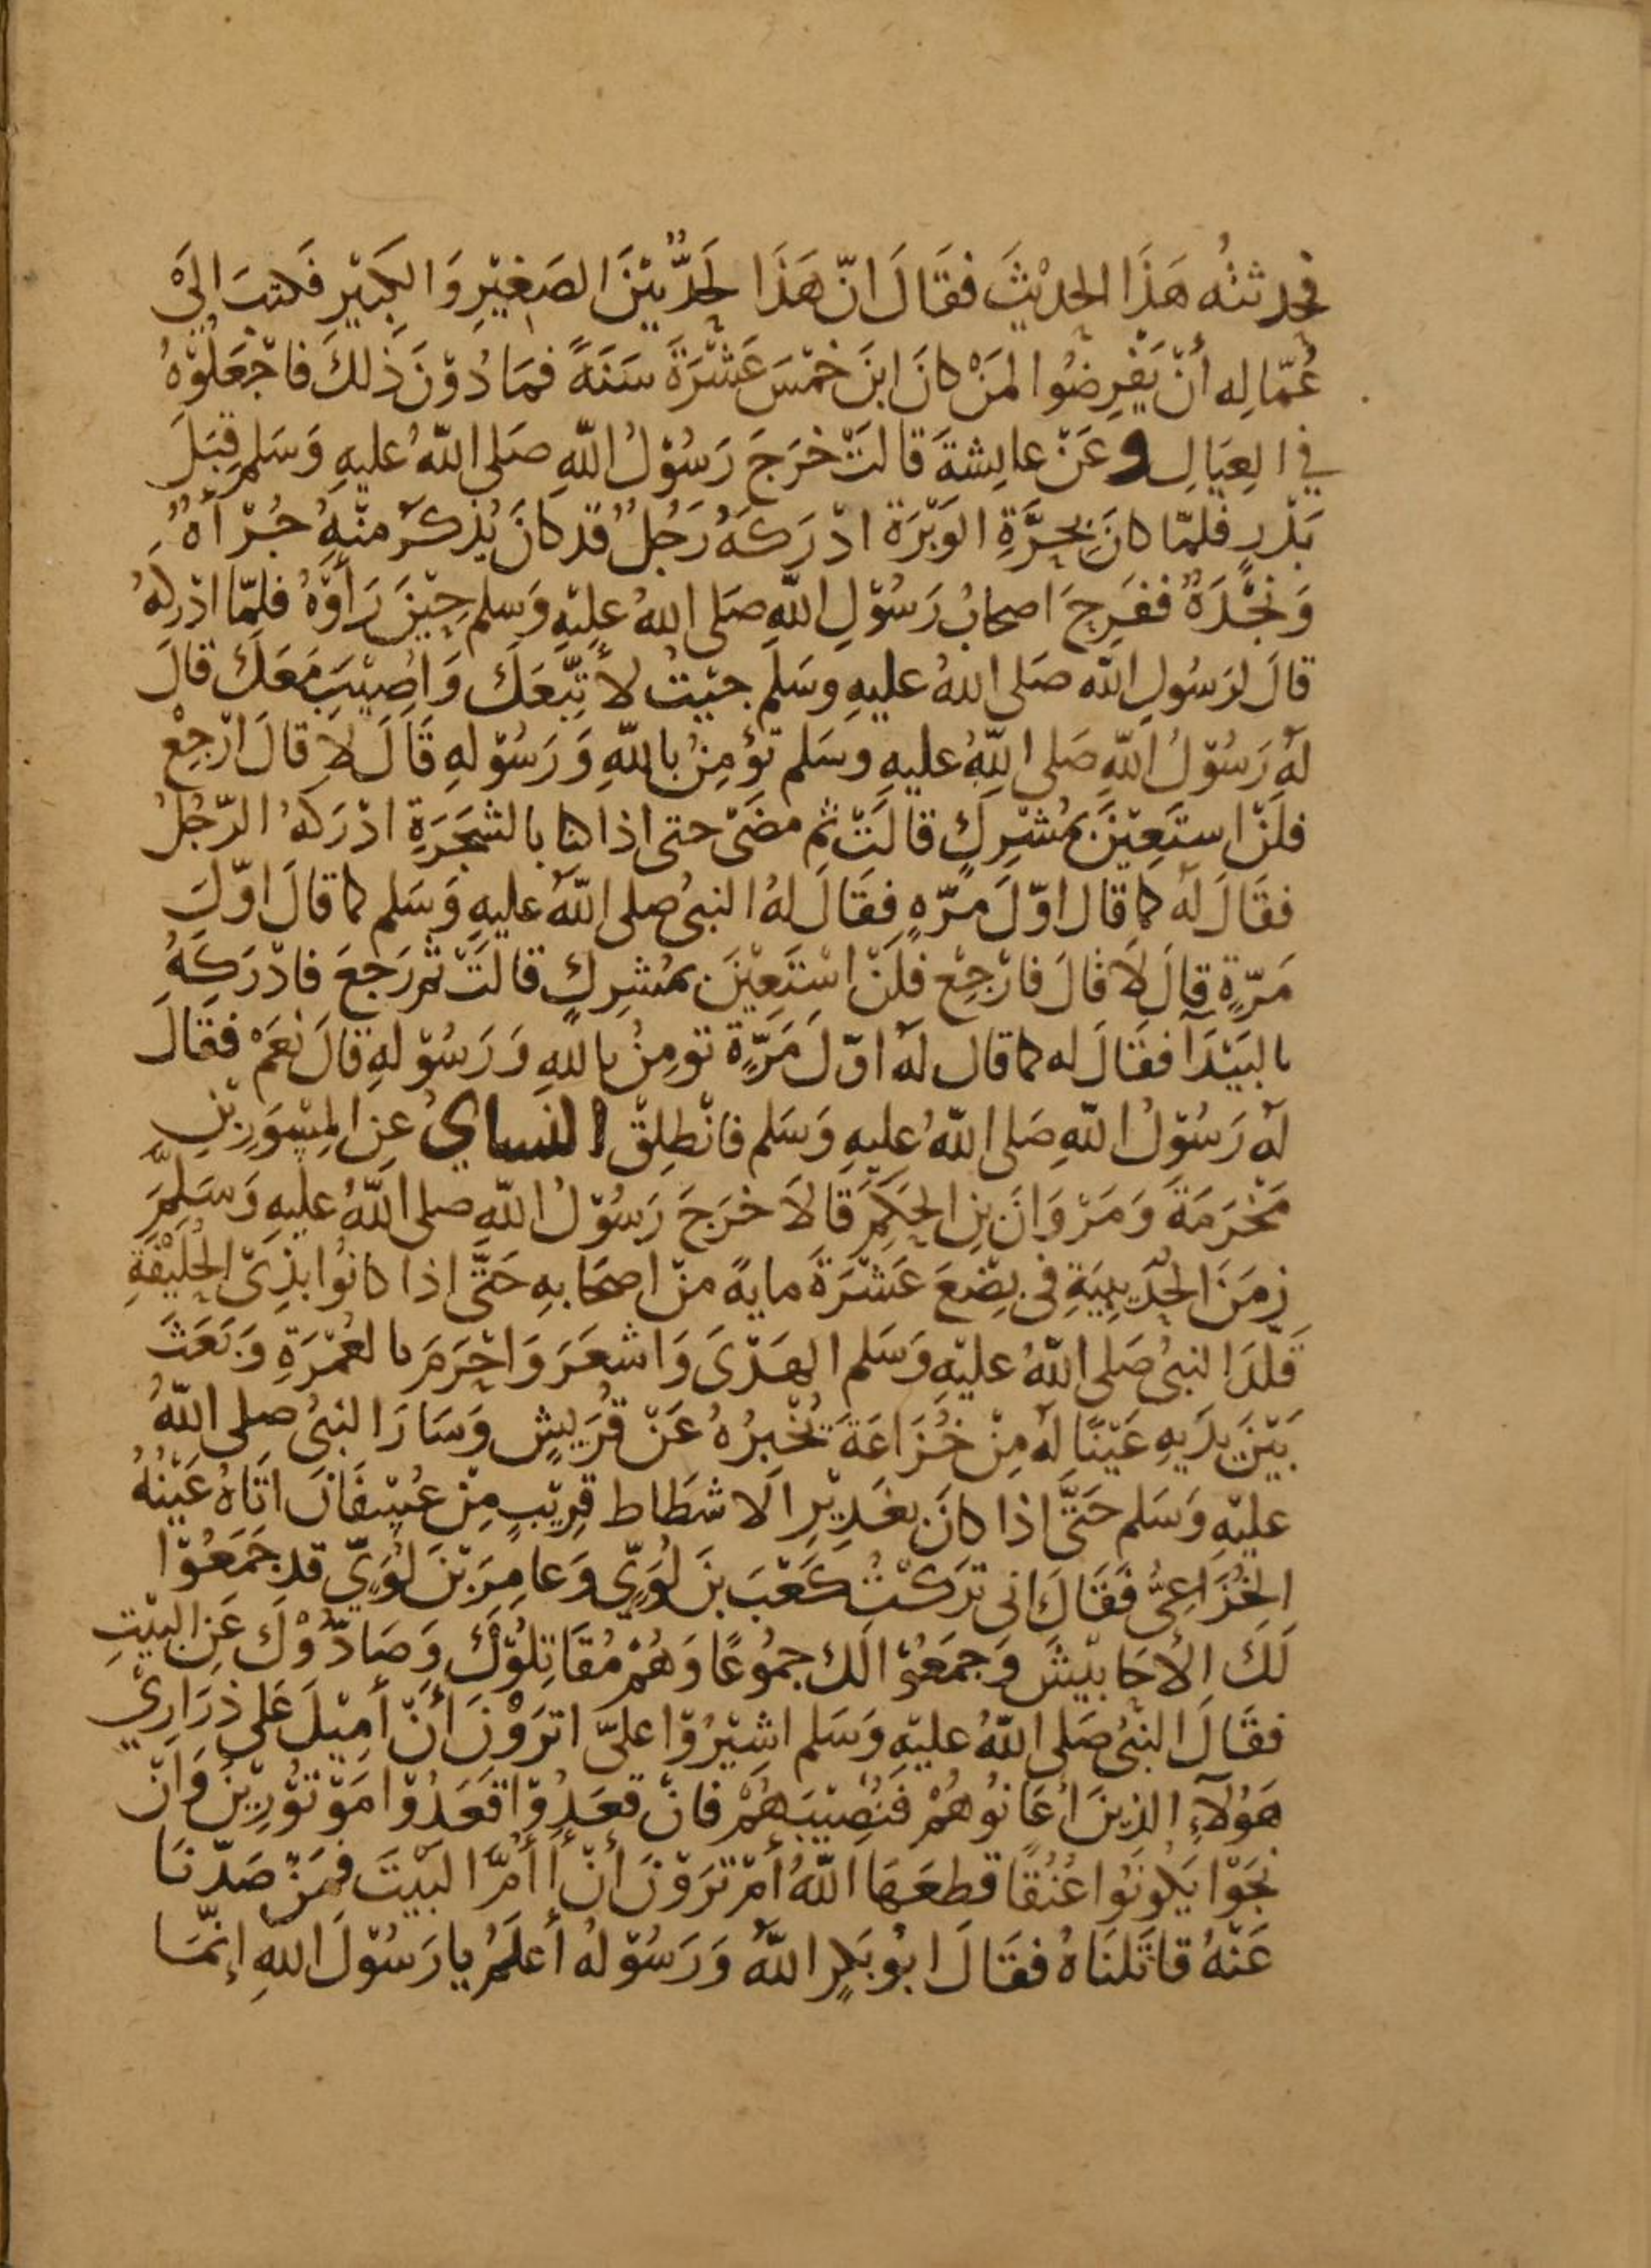 فحدثتُه هَذَا الحدِيْثَ فقَالَ انّ هَذَا لَحَدٌّ بَيْنَ الصَغِيْرِ وَالكَبِيْرِ فَكتبَ الىَ
عُمّالِه أنْ يَفْرِضُوا لمَنْ كانَ ابنَ خمْسَ عَشْرَةَ سَنَةً فمَا دُوْنَ ذلكَ فاجْعَلُوْهُ
في العِيَالِ وعَنْ عايشةَ قالَتْ خرَجَ رَسُوْلُ اللّهِ صَلى اللّهُ عليهِ وَسَلم قِبَلَ
بَدْرٍ فلمّا كانَ بِحَرَّةِ الوَبْرَة ادْرَكَهُ رَجُلٌ قد كانَ يُذكرُ منْهُ جُرْأهٌ
وَنَجْدَةٌ ففَرِحَ اصحابُ رَسُوْلِ اللّهِ صَلى اللهُ عليْهِ وَسلم حِيْنَ رَأوْهُ فلمّا ادْركهُ
قالَ لرَسُولِ اللّه صَلى اللهُ عليهِ وسَلَم جيْتُ لأتّبعَكَ وَاُصِيْبَ مَعَكَ قالَ
لهُ رَسُوْلُ اللّهِ صَلى اللّهُ عليهِ وسَلم تؤمِنُ باللّهِ وَرَسُوْلهِ قَالَ لا قالَ ارْجِعْ
فلَنْ استَعِيْنَ بمُشْرِكٍ قالَتْ ثم مضَىْ حتى اذا كنا بالشَجَرَةِ ادْرَكهُ الرّجُلُ
فقَالَ لهُ كما قال اوّلَ مرّهٍ فقَالَ لهُ النبىُ صلى اللّهُ عليهِ وَسَلم كما قالَ اوّلَ
مَرّةٍ قالَ لَا قالَ فارْجِعْ فلَنْ اسْتَعِيْنَ بمُشرِكٍ قالَتْ ثم رَجعَ فادْرَكَهُ
بالبَيْدَآ فقَالَ له كما قال لهُ اوّلَ مَرَّةٍ تومِنُ باللهِ وَرَسُوْلهِ قالَ نعَمْ فقَالَ
لهُ رَسُوْلُ اللّهِ صَلى اللّهُ عليهِ وَسَلم فانْطلِقْ النساي عن المِسْوَرِ بْنِ
مَخْرَمَةَ وَمَرْوَانَ بنِ الحَكمِ قالَا خرَجَ رَسُوْلُ اللّهِ صلى اللّهُ عليهِ وَسَلمَ
زمَنَ الحُدَيبِيَةِ فى بِضْعَ عَشْرَةَ مايةً منْ اصحَابهِ حَتَّى اذا كانُوا بذِىْ الحُلَيْفَةِ
قَلّدَ النبىُ صَلى اللّهُ عليْهِ وَسَلم الهَدْىَ وَاشعَرَ وَاحْرَمَ بالعُمْرَةِ وَبَعَثَ
بَيْنَ يدَيهِ عَيْنًا لهُ مِنْ خُزَاعَةَ تُخْبِرُهُ عَنْ قُرَيشٍ وَسَارَ النبىُ صلى اللّهُ
عليْهِ وَسَلم حَتَّى اذا كانَ بغَدِيْرِ الاشطَاط قرِيْبٍ مِنْ عُسْفَانَ اتَاهُ عَيْنُهُ
الخُزَاعِىُّ فقَالَ انى ترَكْتُ كَعْبَ بنَ لُوَيّ وَعامِرَ بْنَ لُوَيّ قد جَمَعُوْا
لَكَ الأحَابيْشَ وَجمَعُوْا لكَ جمُوعًا وَهُمْ مُقَاتِلُوْكَ وَصَادُّوْكَ عَنِ البَيْتِ
فقَالَ النبىُ صَلى اللّهُ عليْهِ وَسَلم اشِيْرُوْا علىّ اترَوْنَ أنْ أمِيْلَ عَلى ذرَارِيْ
هَؤلآءِ الذينَ اعَانُوهُمْ فَنُصِيْبَهُمْ فانْ قعَدُوْا قعَدُوْا مَوْتوْرِيْنَ وَانْ
نجَوْا يَكُونُوا عُنُقًا قطعَهَا اللّهُ أمْ ترَوْنَ أنْ أأمَّ البَيْتَ فمَنْ صَدّنَا
عَنْهُ قاتَلنَاهُ فقَالَ ابُو بَكرٍ اللّهُ وَرَسُوْلهُ أعلَمُ يا رَسُوْلَ اللهِ إنّمَا